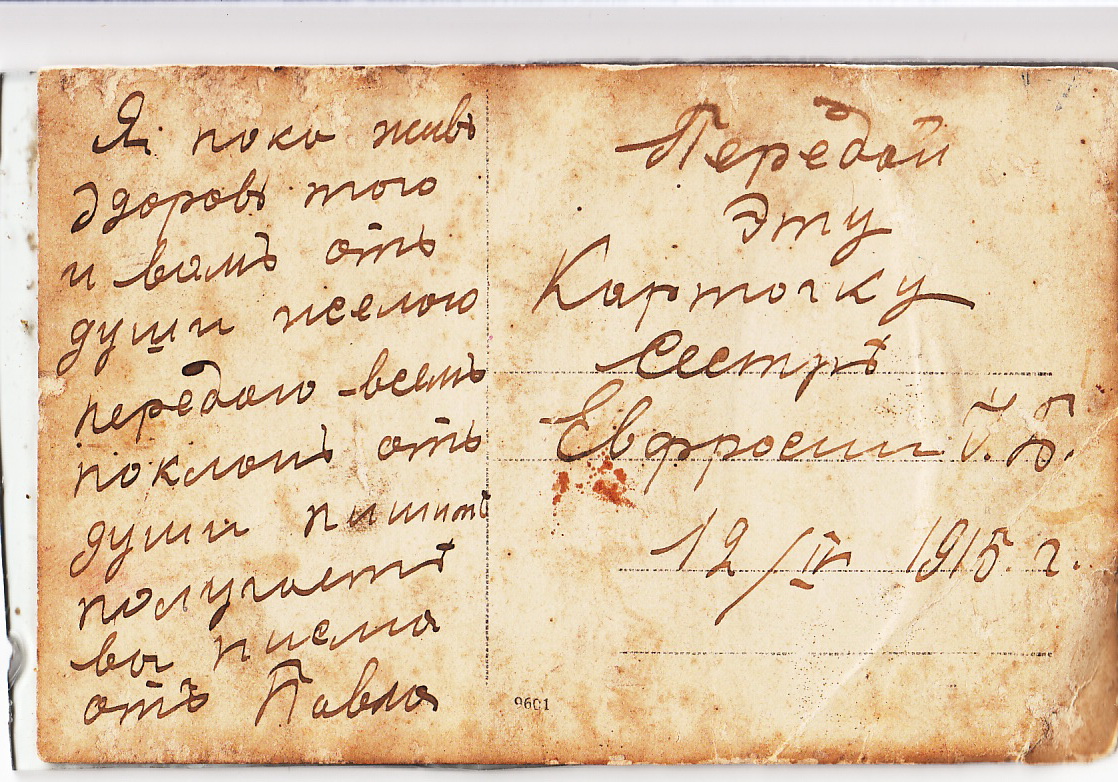 Я пока живъ
здоровъ того
и вамъ отъ
души желаю
передаю всемъ
поклонъ отъ
души пишитѣ
получаетѣ
вы писма
отъ Павла
Передай
Эту
Карточку
Сестрѣ
Евфросини Т. Б.
12/IV 1915. г.
9601